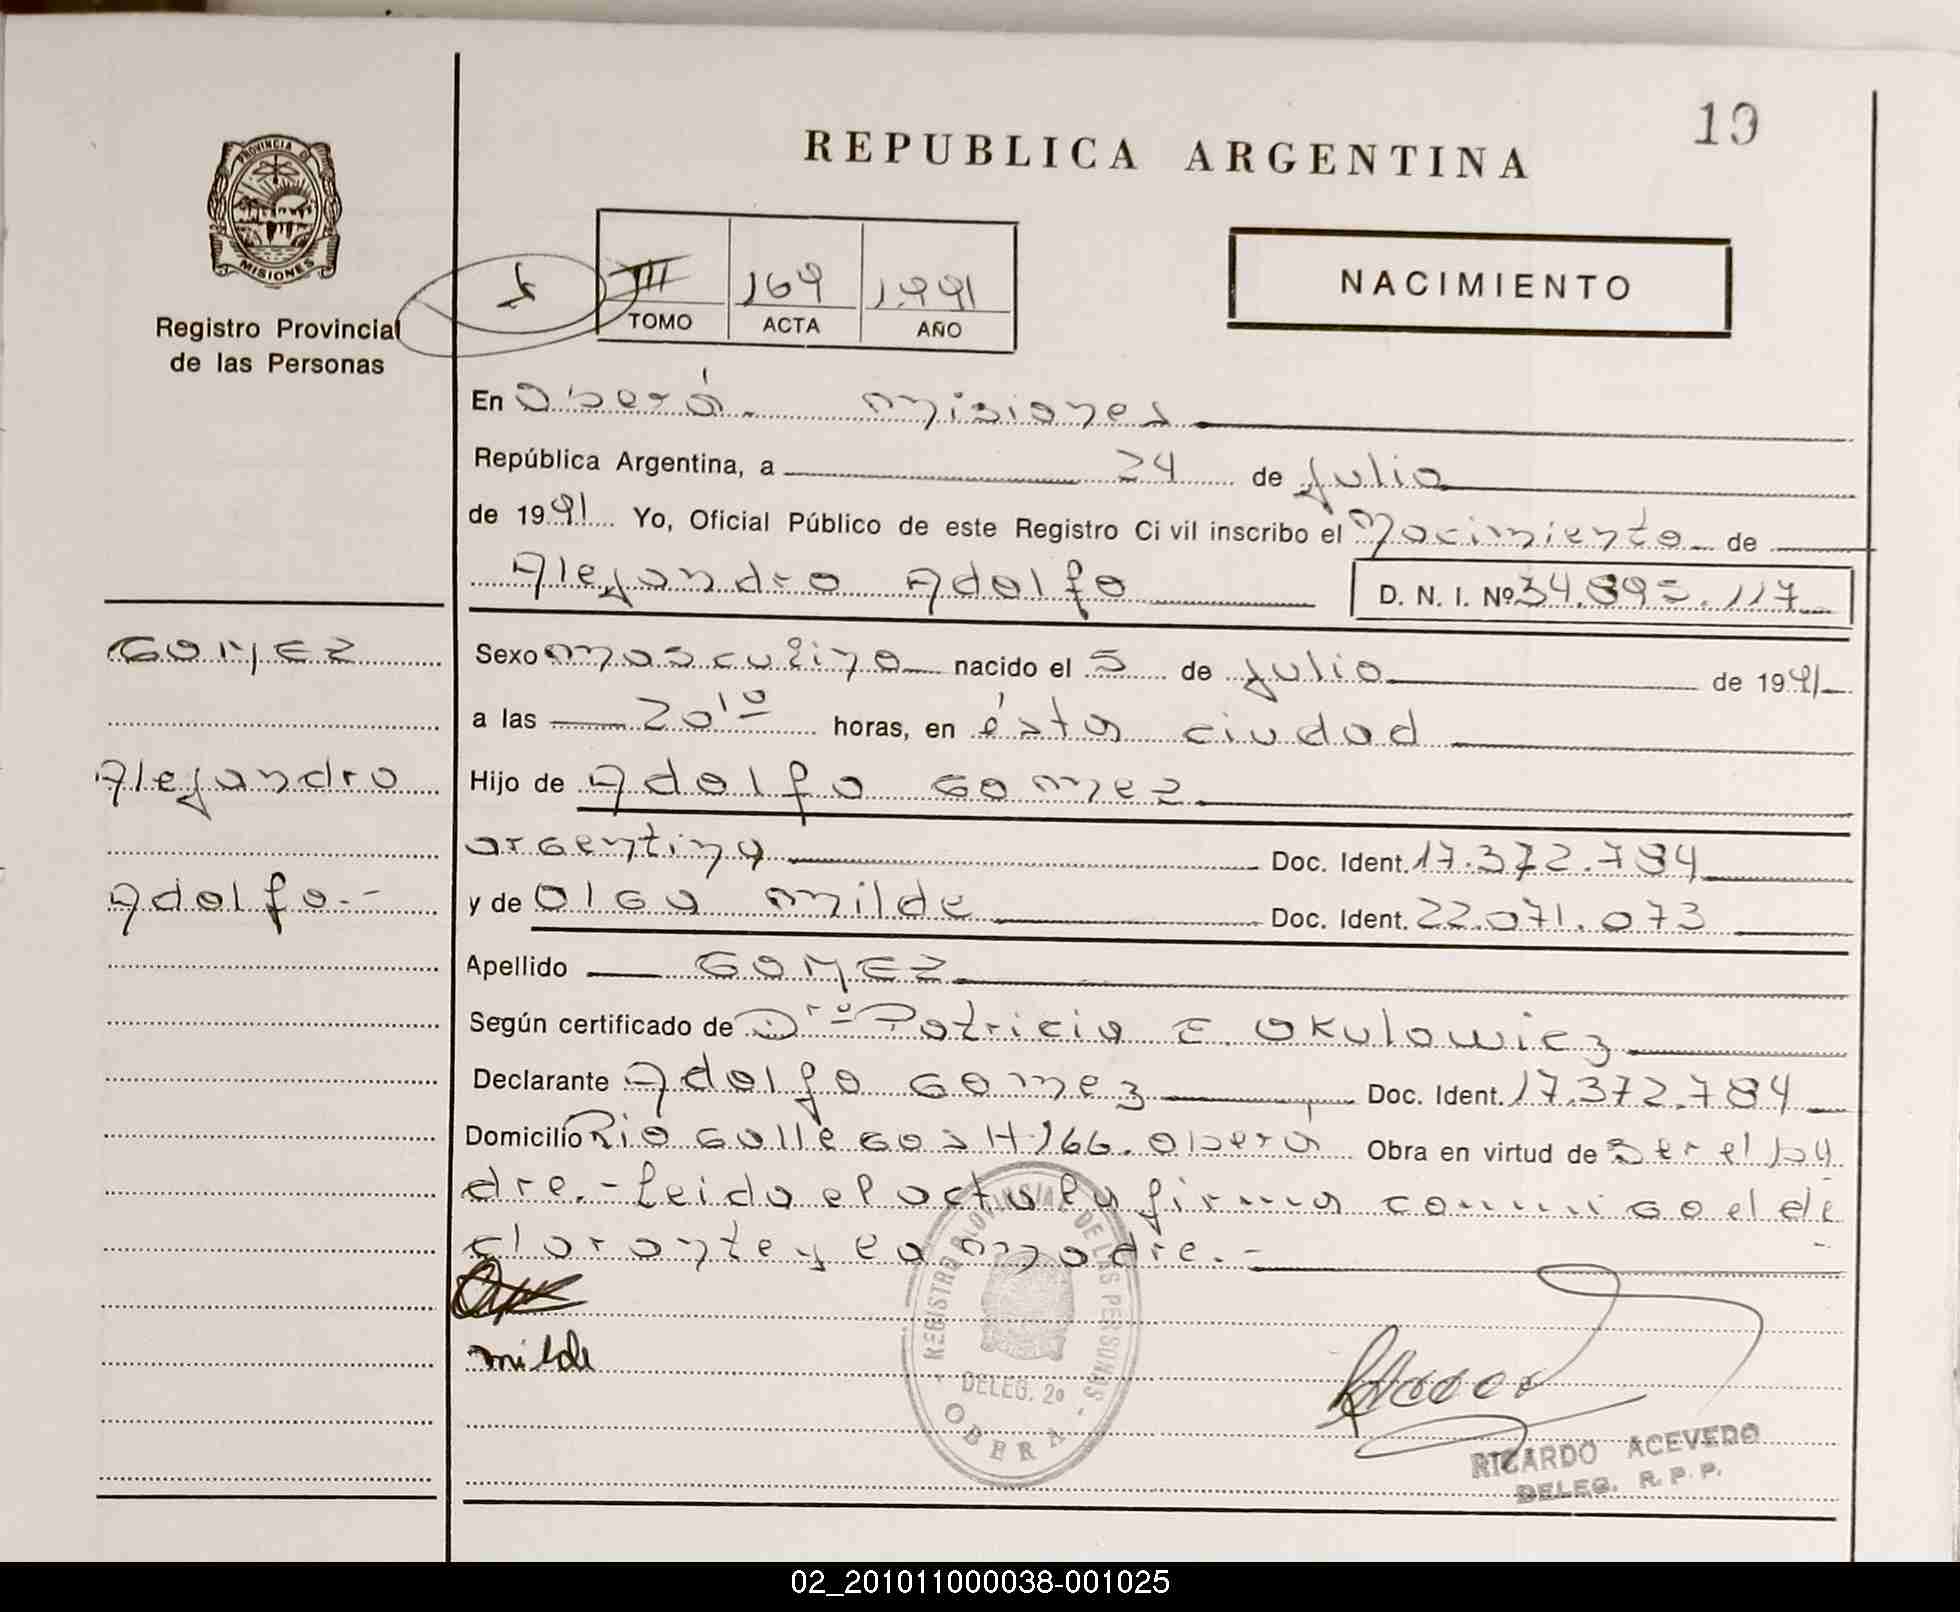 19
REPUBLICA ARGENTINA
PROVINCIA D
MISIONES
Registro Provincial
de las Personas
I III 169 1.991
TOMO ACTA AÑO
NACIMIENTO
En Oberá. misiones
República Argentina, a 24 de julio
de 1991 Yo, Oficial Público de este Registro Ci vil inscribo el Nacimiento de
Alejandro Adolfo D. N. I. Nº 34.895.117
GOMEZ
Sexo masculino nacido el 5 de julio de 1991
a las 20 10 horas, en ésta ciudad
Alejandro
Hijo de Adolfo GOmez
argentino Doc. Ident. 17.372.784
Adolfo.-
y de OlGa milde Doc. Ident. 22.071.073
Apellido GOMEZ
Según certificado de Dra Patricia E. Okulowicz
Declarante Adolfo GOmez Doc. Ident. 17.372.784
Domicilio Rio GalleGos H.166. Oberá Obra en virtud de ser el pa
dre.- Leida el acta la firma conmiGo el de
clarante y la madre.-
milde
REGISTRO PROVINSIAL DE LAS PERSONAS
DELEG. 2º
OBERA
RICARDO ACEVEDO
DELEG. R. P. P.
02_201011000038-001025